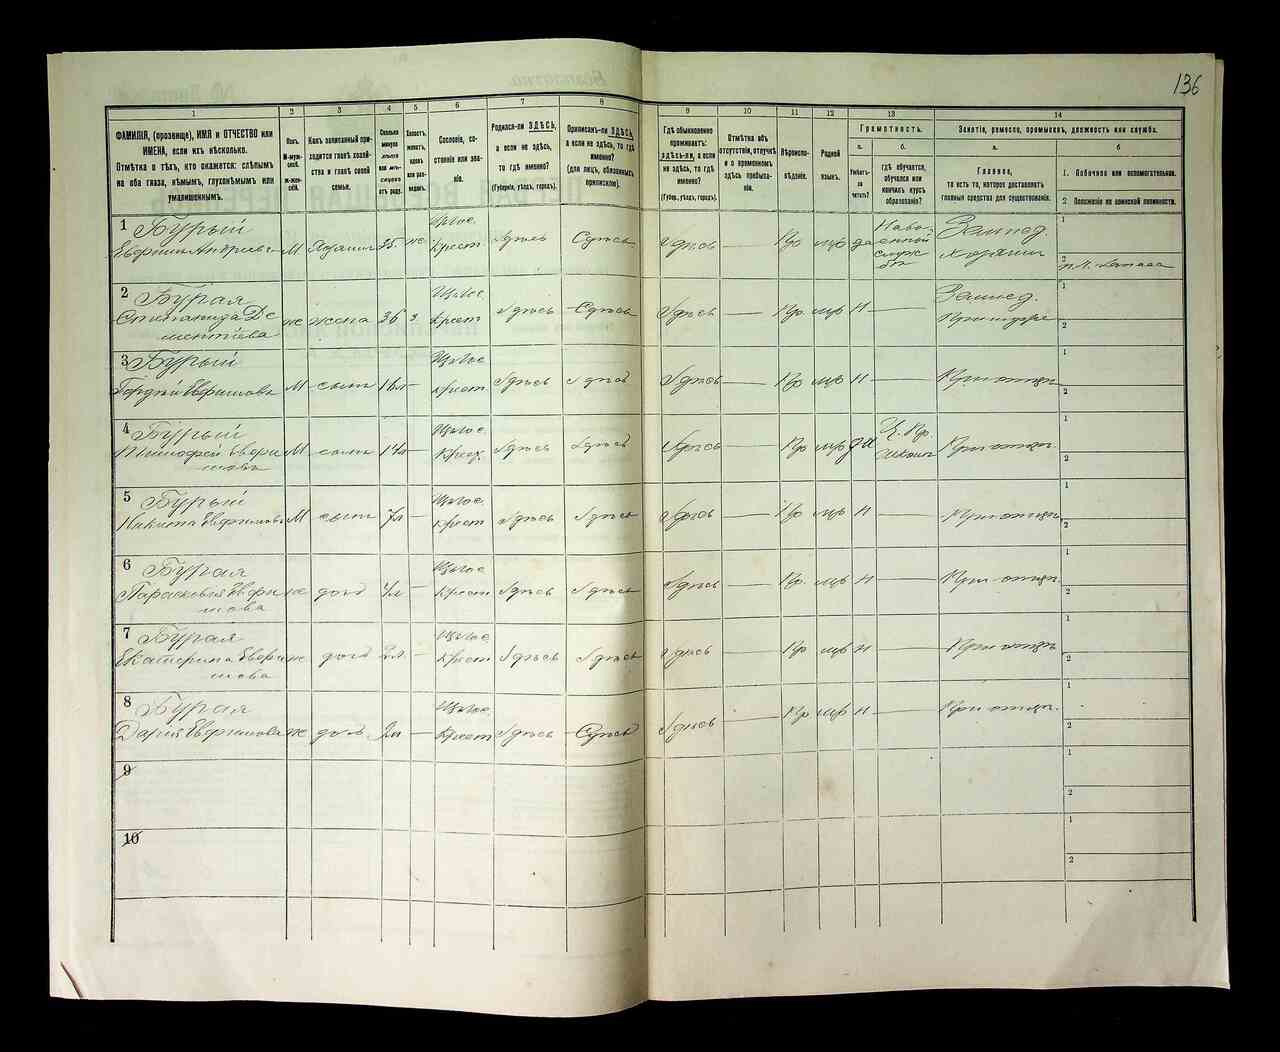 136
1 2 3 4 5 6 7 8 9 10 11 12 13 14
ФАМИЛІЯ, (прозвище), ИМЯ и ОТЧЕСТВО или
ИМЕНА, если ихъ нѣсколько.
Отмѣтка о тѣхъ, кто окажется: слѣпымъ
на оба глаза, нѣмымъ, глухонѣмымъ или
умалишеннымъ.
Полъ.
М-муж-
ской.
Ж-жен-
скій.
Какъ записанный при-
ходится главѣ хозяй-
ства и главѣ своей
семьи.
Сколько
минуло
лѣтъ
или мѣ-
сяцевъ
отъ роду.
Холостъ,
женатъ,
вдовъ
или раз-
веденъ.
Сословіе, со-
стояніе или зва-
ніе.
Родился-ли ЗДѢСЬ,
а если не здѣсь,
то гдѣ именно?
(Губернія, уѣздъ, городъ).
Приписанъ-ли ЗДѢСЬ,
а если не здѣсь, то гдѣ
именно?
(для лицъ, обязанныхъ
припискою).
Гдѣ обыкновенно
проживаетъ:
здѣсь-ли, а если
не здѣсь, то гдѣ
именно?
(Губер., уѣздъ, городъ).
Отмѣтка объ
отсутствіи, отлучкѣ
и о временномъ
здѣсь пребыва-
ніи.
Вѣроиспо-
вѣданіе.
Родной
языкъ.
Грамотность.
а. б.
Умѣетъ-
ли
читать?
гдѣ обучается,
обучался или
кончилъ курсъ
образованія?
Занятіе, ремесло, промыселъ, должность или служба.
а. б
Главное,
то есть то, которое доставляетъ
главныя средства для существованія.
1. Побочное или вспомогательное.
2 Положеніе по воинской повинности.
1 Бурый
М Хозяинъ 35 ж Крест. Здѣсь Здѣсь Здѣсь — Пр мр да Землед.
Хозяинъ
1
2
2 Бурая
Степанида Де
ментіева ж жена 36 з Крест Здѣсь Здѣсь Здѣсь — Пр мр н — Землед.
1
2
3 Бурый
Гордѣй Евфимовъ М сынъ 16л — Крест. Здѣсь Здѣсь Здѣсь — Пр мр н — При отцѣ
1
2
4 Бурый
Тимофей Евфи
мовъ М сынъ 14л — Крест. Здѣсь Здѣсь Здѣсь — Пр мр да Ц. Пр.
Школѣ При отцѣ.
1
2
5 Бурый
Никита Евфимовъ М сынъ 7л — Крест Здѣсь Здѣсь Здѣсь — Пр мр н — При отцѣ
1
2
6 Бурая
Парасковія Евфи
мова ж доч 4л — Крест Здѣсь Здѣсь Здѣсь — Пр мр н — При отцѣ
1
2
7 Бурая
Екатерина Евфи
мова ж доч 2л. — Крест Здѣсь Здѣсь Здѣсь — Пр мр н — При отцѣ
1
2
8 Бурая
Дарія Евфимова ж доч. 2л — Крест Здѣсь Здѣсь Здѣсь — Пр мр н — При отцѣ.
1
2
9
1
2
10
1
2